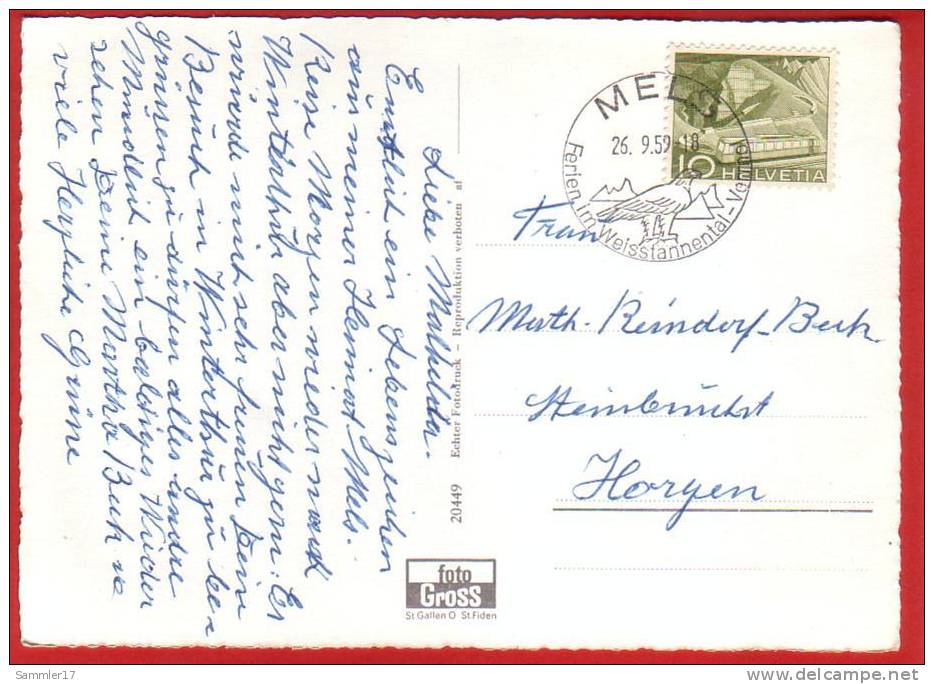 Liebe Mathilda.
Endlich ein Lebenszeichen
aus meiner Heimat Mels.
Reise Morgen wieder nach
Winterthur aber nicht gern: Es
würde mich sehr freuen Dein
Besuch in Winterthur zu be
grüssen zu dürfen alles andre
Mündlich ein baldiges Wieder
sehen Deine Martha Buch
viele Herzliche Grüsse
20449 Echter Fotodruck – Reproduktion verboten
foto
Gross
St.Gallen O St.Fiden
MELS
26. 9.59-18
Ferien im Weisstannental-Vermol
10 HELVETIA
Frau
Math. Reindorf-Bech
Steinbrüchst
Horgen
Sammler17
www.delcampe.net